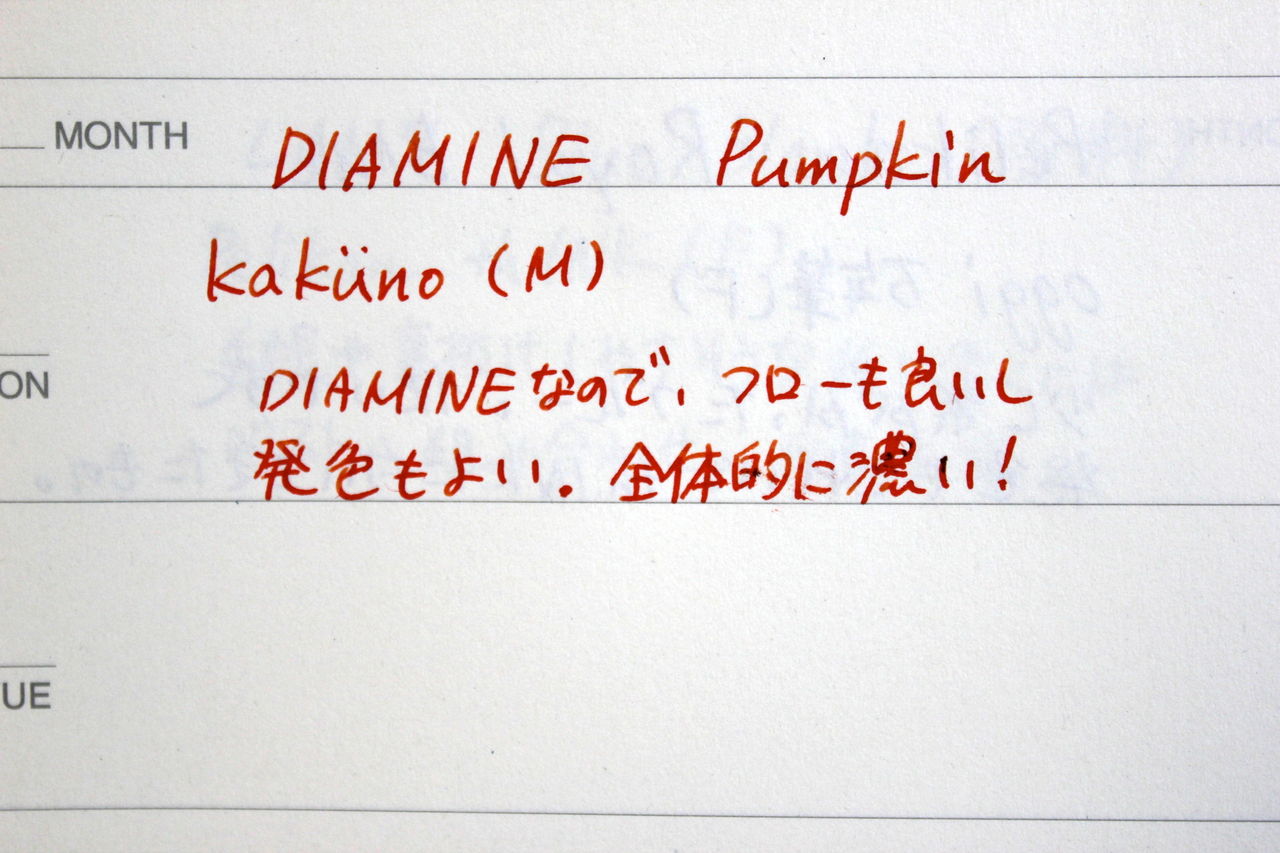 MONTH
DIAMINE Pumpkin
kaküno (M)
DIAMINEなので、フローも良いし
ON
発色もよい。全体的に濃い!
UE